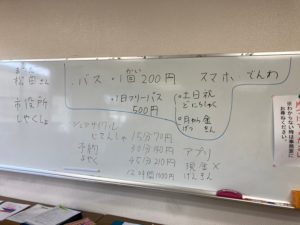 バス・1回 200円
かい
スマホ・でんわ
・1日フリーバス
500円
○土日祝
どにちしゅく
○月から金
げつ きん
市役所
しやくしょ
じてんしゃ 15分 70円
予約 30分 140円 アプリ
よやく 45分 210円 現金 ×
12時間 1000円 げんきん